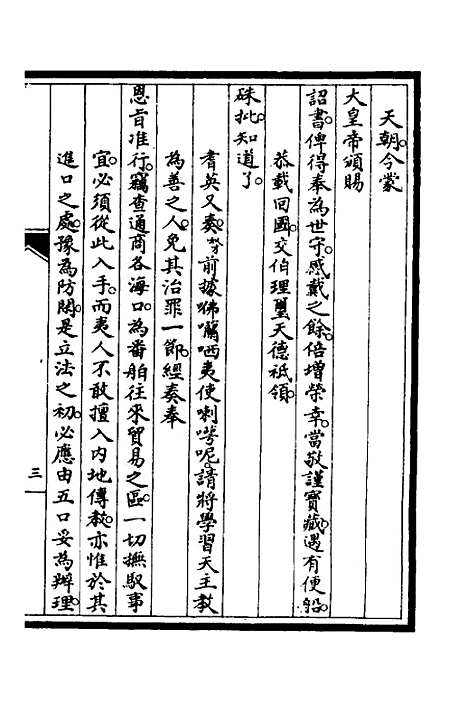 天朝。今蒙
大皇帝頒賜
詔書。俾得奉為世守。感戴之餘。倍增榮幸。當敬謹寶藏。遇有便船。
恭載回國。交伯理璽天德祇領。
硃批。知道了。
耆英又奏。竊前據咈囒哂夷使喇咢呢。請將學習天主教
為善之人。免其治罪一節。經奏奉
恩旨准行。竊查通商各海口。為番舶往來貿易之區。一切撫馭事
宜。必須從此入手。而夷人不敢擅入內地傳教。亦惟於其
進口之處。豫為防閑。是立法之初。必應由五口妥為辦理。
三